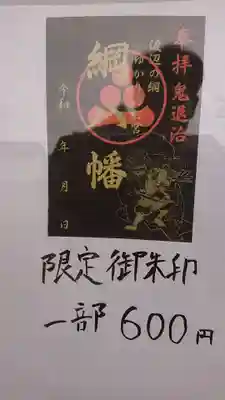 奉拝鬼退治
渡辺の綱
ゆかりの宮
綱八幡
令和 年 月 日
限定御朱印
一部 600円